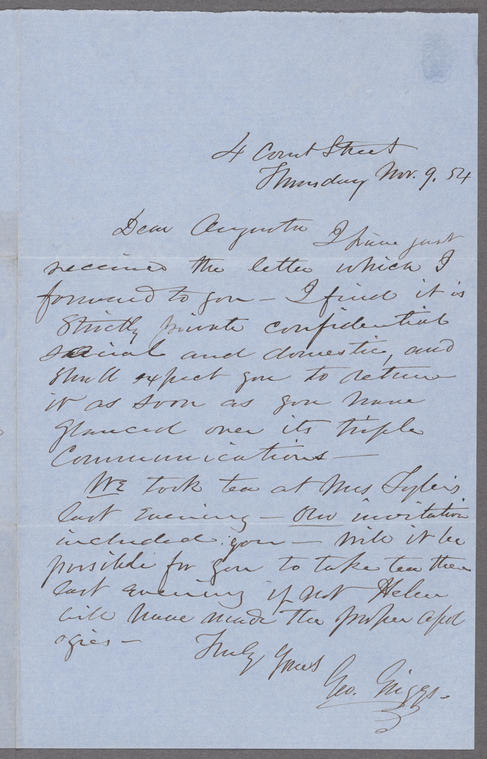 4 Court Street
Thursday Nov. 9. 54
Dear Augusta I have just
received the letter which I
forward to you - I find it is
Strictly private confidential
social and domestic, and
shall expect you to return
it as soon as you have
glanced over its triple
Communications -
We took tea at Mrs Tyler's
last evening - Our invitation
included you - Will it be
possible for you to take tea there
last evening if not Helen
will have made the proper apol
ogies - Truly Yours
Geo. Griggs.